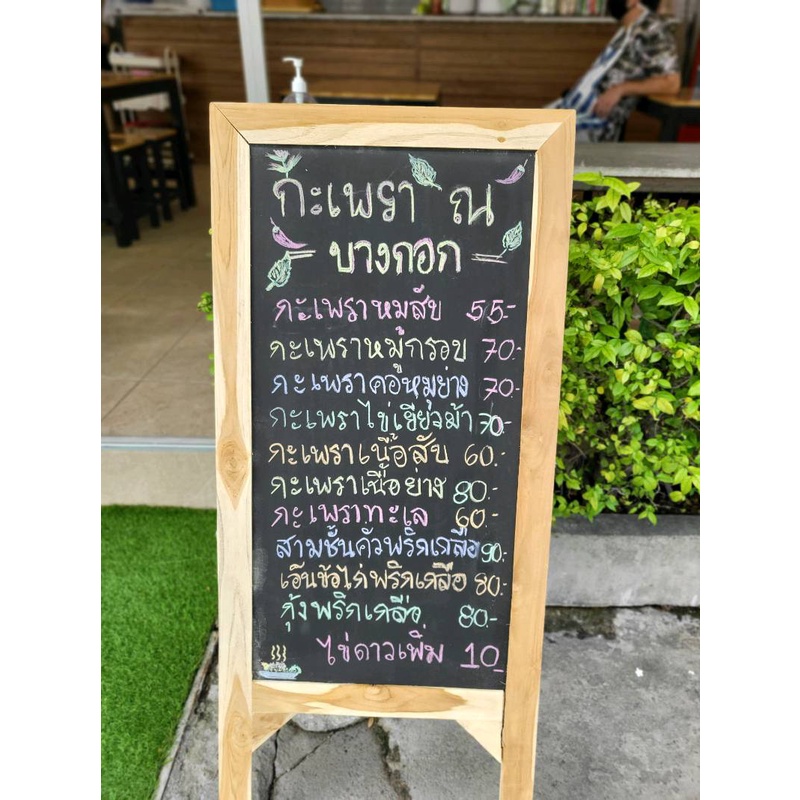 กะเพรา ณ
บางกอก
กะเพราหมูสับ 55.-
กะเพราหมูกรอบ 70.-
กะเพราคอหมูย่าง 70.-
กะเพราไข่เยี่ยวม้า 70-
กะเพราเนื้อสับ 60.-
กะเพราเนื้อย่าง 80.-
กะเพราทะเล 60.-
สามชั้นคั่วพริกเกลือ 90.-
เอ็นข้อไก่พริกเกลือ 80.-
กุ้งพริกเกลือ 80.-
ไข่ดาวเพิ่ม 10_